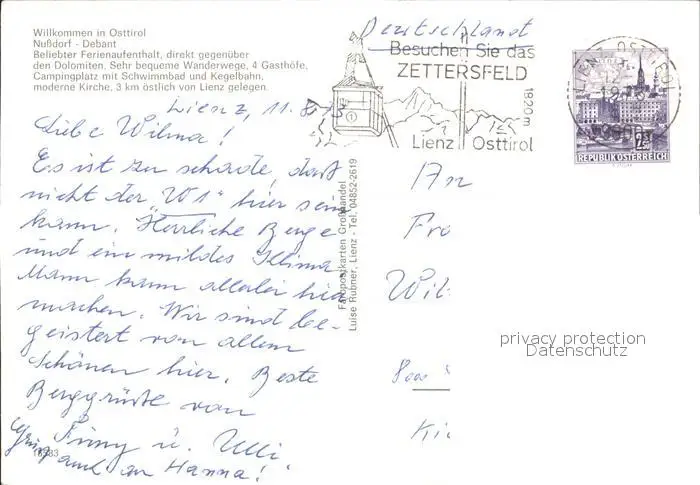 Willkommen in Osttirol
Nußdorf - Debant
Beliebter Ferienaufenthalt, direkt gegenüber
den Dolomiten. Sehr bequeme Wanderwege, 4 Gasthöfe,
Campingplatz mit Schwimmbad und Kegelbahn,
moderne Kirche, 3 km östlich von Lienz gelegen.
Lienz, 11.8.
Liebe Wilma!
Es ist zu schade, daß
nicht der "W1" hier sein
kann. Herrliche Berge
und ein mildes Klima.
Mann kann allerlei hier
machen. Wir sind be-
geistert von allem
Schönen hier. Beste
Berggrüße von
u. Ulli
Gruß auch an Hanna!
Farbpostkarten Großhandel
Luise Rubner, Lienz - Tel. 04852-2619
Deutschland
Besuchen Sie das
ZETTERSFELD
1820 m
Lienz Osttirol
LIENZ, OSTTIROL
9900
REPUBLIK ÖSTERREICH
An
Fra
Wil
800
privacy protection
Datenschutz